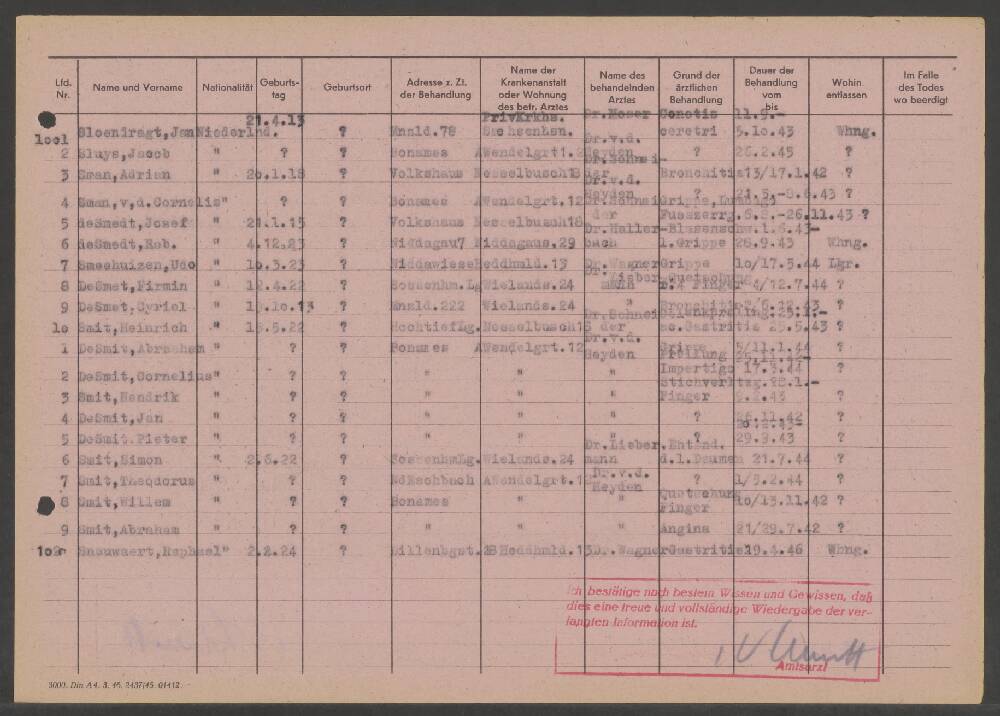 Lfd. Nr. Name und Vorname Nationalität Geburts-tag Geburtsort Adresse z. Zt. der Behandlung Name der Krankenanstalt oder Wohnung des betr. Arztes Name des behandelnden Arztes Grund der ärztlichen Behandlung Dauer der Behandlung vom bis Wohin entlassen Im Falle des Todes wo beerdigt
21.4.13 PrivKrkhs. Dr.Moser 11.9.-
1001 Niederlnd. ? Sachsenhsn. 5.10.43 Whng.
2 Sluys,Jacob " ? ? Bonames AWendelgrt1. Dr.v.d. Heyden ? 26.2.45 ?
3 Sman,Adrian " 20.1.18 ? Volkshaus Nesselbusch18 Bronchitis 13/17.1.42 ?
4 Sman,v,d.Cornelis " ? ? Bonames AWendelgrt.12 Dr.v.d. Heyden ? 21.5.-8.6.43 ?
5 deSmedt,Josef " 21.1.15 ? Volkshaus Nesselbusch18 Grippe, Fusszerrg. 6.8.-26.11.43 ?
6 deSmedt,Rob. " 4.12.23 ? Niddagau7 Niddagaus.29 Dr.Haller-bach Blasenschw. 1.6.43- 1.Grippe 28.9.43 Whng.
7 Smeehuizen,Udo " 10.3.23 ? Niddawiese Heddhmld.13 Dr.Wagner Grippe 10/17.5.44 Lgr.
8 DeSmet,Firmin " 12.4.22 ? Sossenhm.Lg Wielands.24 Dr. Lieber mann Quetschung Finger 4/12.7.44 ?
9 DeSmet,Cyriel " 19.10.13 ? Wielands.24 " Bronchitis 2/6.12.43 ?
10 Smit,Heinrich " 19.5.22 ? HochtiefLg. Nesselbusch18 Dr.Schnei der ac.Gastritis 25.1.- 25.5.43 ?
1 DeSmit,Abraham " ? ? Bonames AWendelgrt.12 Dr.v.d. Heyden Grippe 5/11.1.44 ?
2 DeSmit,Cornelius " ? ? " " " Impertigo 17.3.44 ?
3 Smit,Hendrik " ? ? " " " Stichverltzg. Finger 28.1.- ?
4 DeSmit,Jan " ? ? " " " ? 26.11.42 ?
5 DeSmit.Pieter " ? ? " " " ? 29.3.43 ?
6 Smit,Simon " 2.6.22 ? SossenhmLg. Wielands.24 Dr.Lieber mann Entznd. d.l.Daumen 21.7.44 ?
7 Smit,Theodorus " ? ? NdEschbach AWendelgrt.12 Dr.v.d. Heyden ? 1/3.2.44 ?
8 Smit,Willem " ? ? Bonames " " Quetschung Finger 10/13.11.42 ?
9 Smit,Abraham " ? ? " " " Angina 21/29.7.42 ?
Snauwaert,Raphael " 2.2.24 ? Dillenbgst. Heddhmld.13 Dr.Wagner Gastritis 19.4.46 Whng.
Ich bestätige nach bestem Wissen und Gewissen, daß
dies eine treue und vollständige Wiedergabe der ver-
langten Information ist.
Amtsarzt
3000. Din A4. 3. 46. 2437/45. 01412